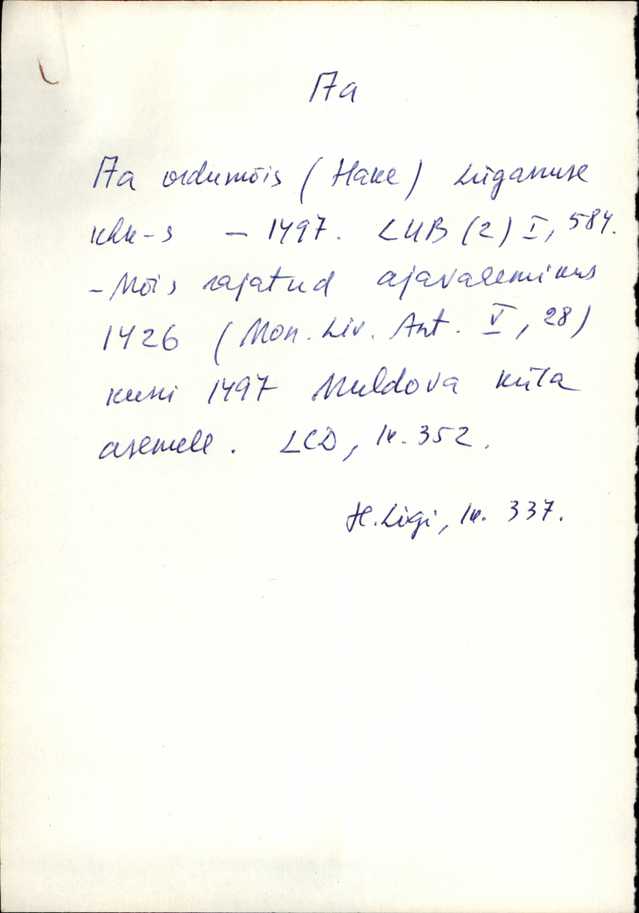 Aa
Aa ordumõis (Hake) Lüganuse
khk-s – 1497. LUB (2) I, 584.
- Mõis rajatud ajavahemikus
1426 (Mon. Liv. Ant. V, 28)
kuni 1497 Muldova küla
asemele. LCD, lk. 352.
H. Ligi, lk. 337.